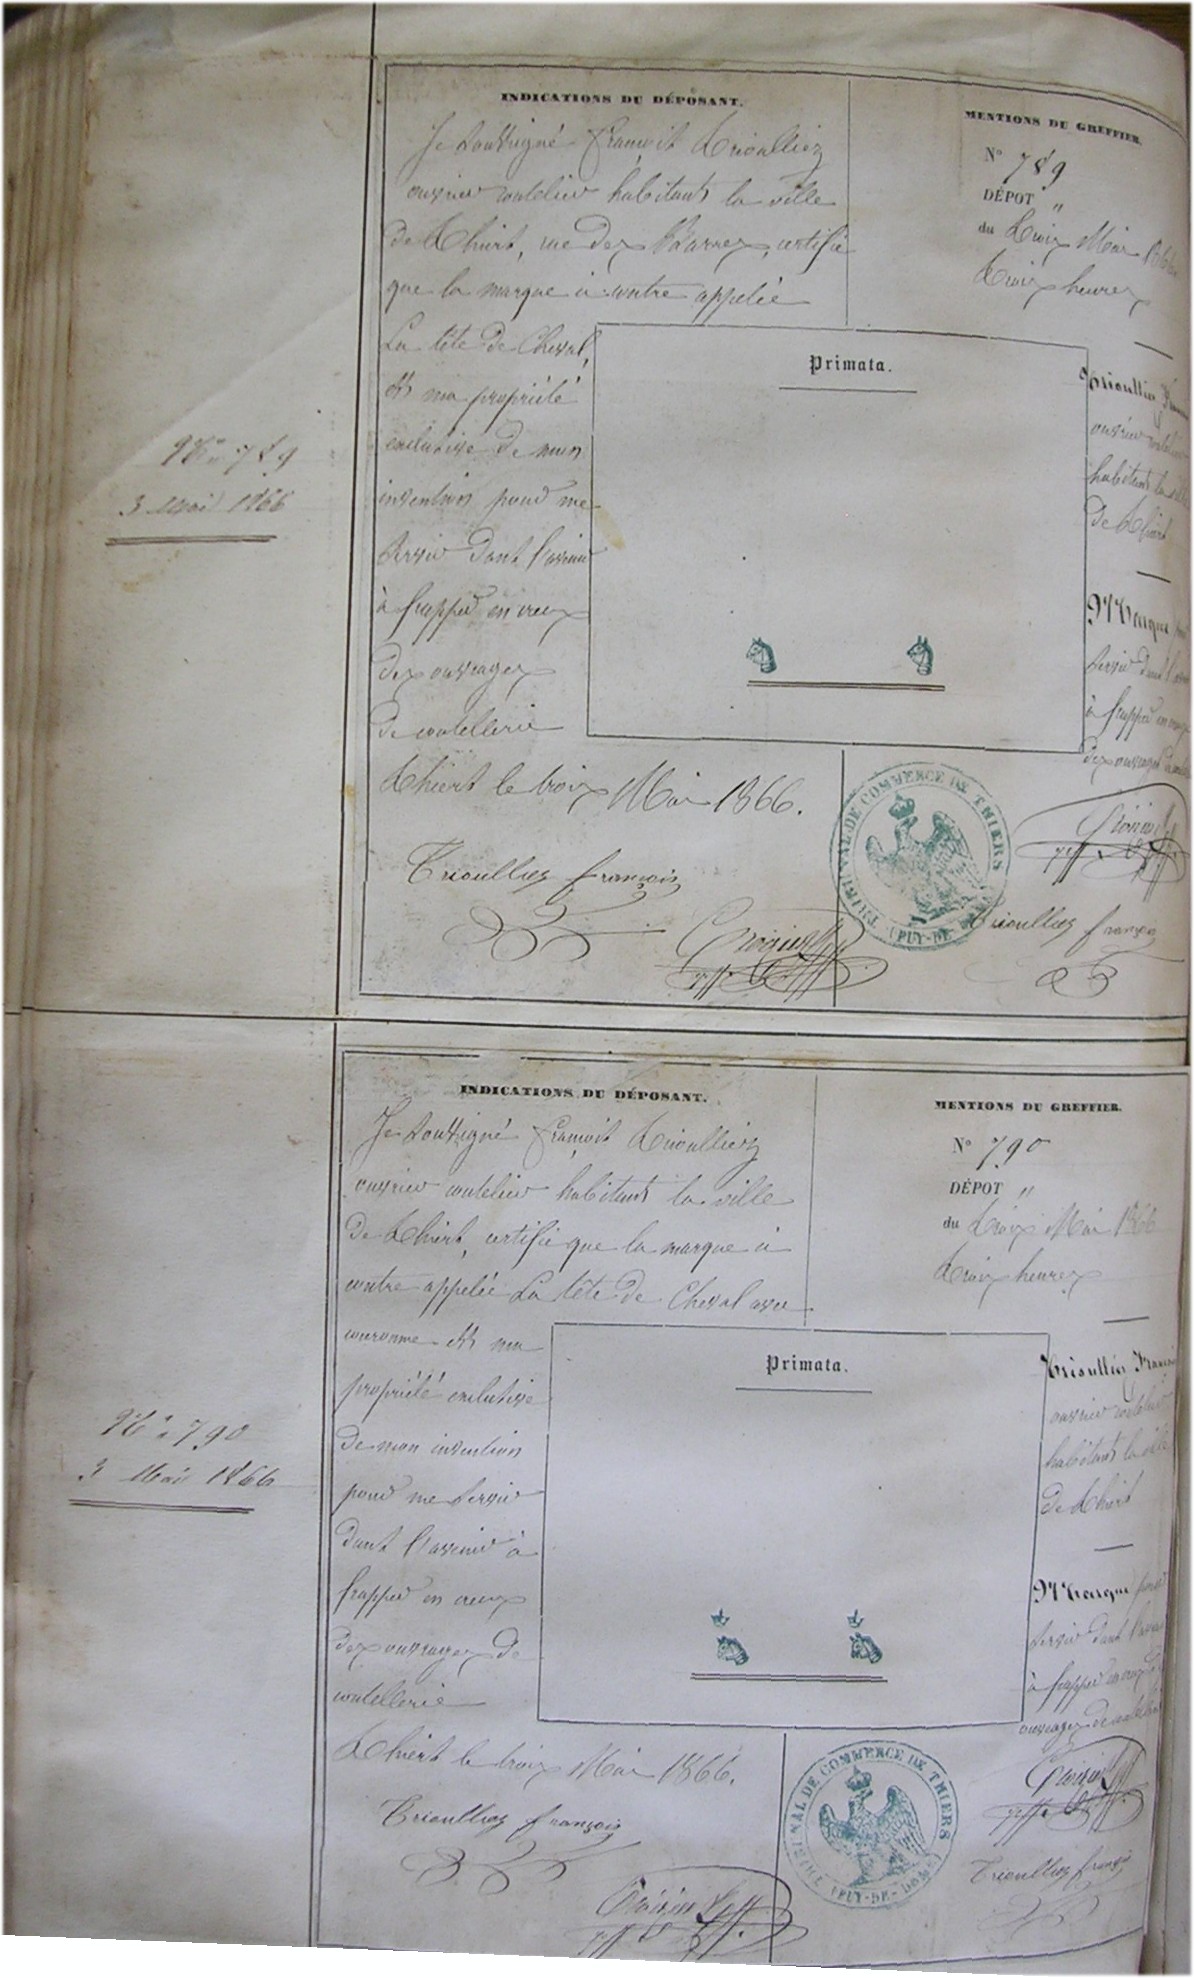 INDICATIONS DU DÉPOSANT.
Je soussigné François Trioullier
ouvrier coutelier habitant la ville
de Thiers, rue des Barres, certifie
que la marque ci contre appelée
La tête de Cheval,
est ma propriété
exclusive de mon
invention pour me
servir dans l'avenir
à frapper en creux
des ouvrages
de coutellerie
Thiers le trois Mai 1866.
Trioullier françois
MENTIONS DU GREFFIER.
N° 789
DÉPOT "
du Trois Mai 1866
Trois heures
Primata.
Trioullier
ouvrier coutelier
habitant la ville
de Thiers
Marque pour
servir dans l'avenir
à frapper en creux
des ouvrages de
TRIBUNAL DE COMMERCE DE THIERS
(PUY-DE-DOME)
Trioullier françois
N° 789
3 Mai 1866
INDICATIONS DU DÉPOSANT.
Je soussigné François Trioullier
ouvrier coutelier habitant la ville
de Thiers, certifie que la marque ci
contre appelée La tête de Cheval avec
couronne est ma
propriété exclusive
de mon invention
pour me servir
dans l'avenir à
frapper en creux
des ouvrages de
coutellerie
Thiers le trois Mai 1866.
Trioullier françois
MENTIONS DU GREFFIER.
N° 790
DÉPOT "
du Trois Mai 1866
Trois heures
Primata.
Trioullier François
ouvrier coutelier
habitant la ville
de Thiers
Marque pour
servir dans l'avenir
à frapper en creux des
ouvrages de coutellerie
TRIBUNAL DE COMMERCE DE THIERS
(PUY-DE-DOME)
Trioullier françois
N° 790
3 Mai 1866